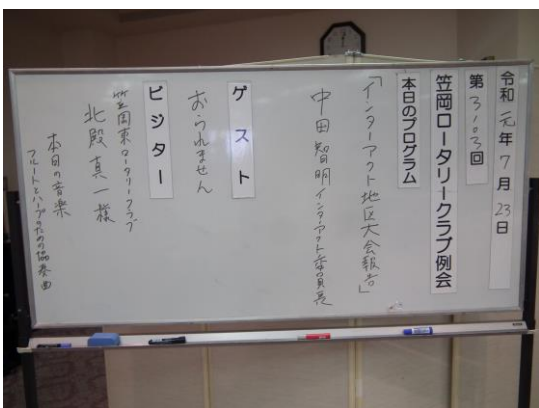 令和元年7月23日
第3103回
笠岡ロータリークラブ例会
本日のプログラム
「インターアクト地区大会報告」
中田智明インターアクト委員長
ゲスト
おられません
ビジター
笠岡東ロータリークラブ
北殿真一様
本日の音楽
フルートとハープのための協奏曲